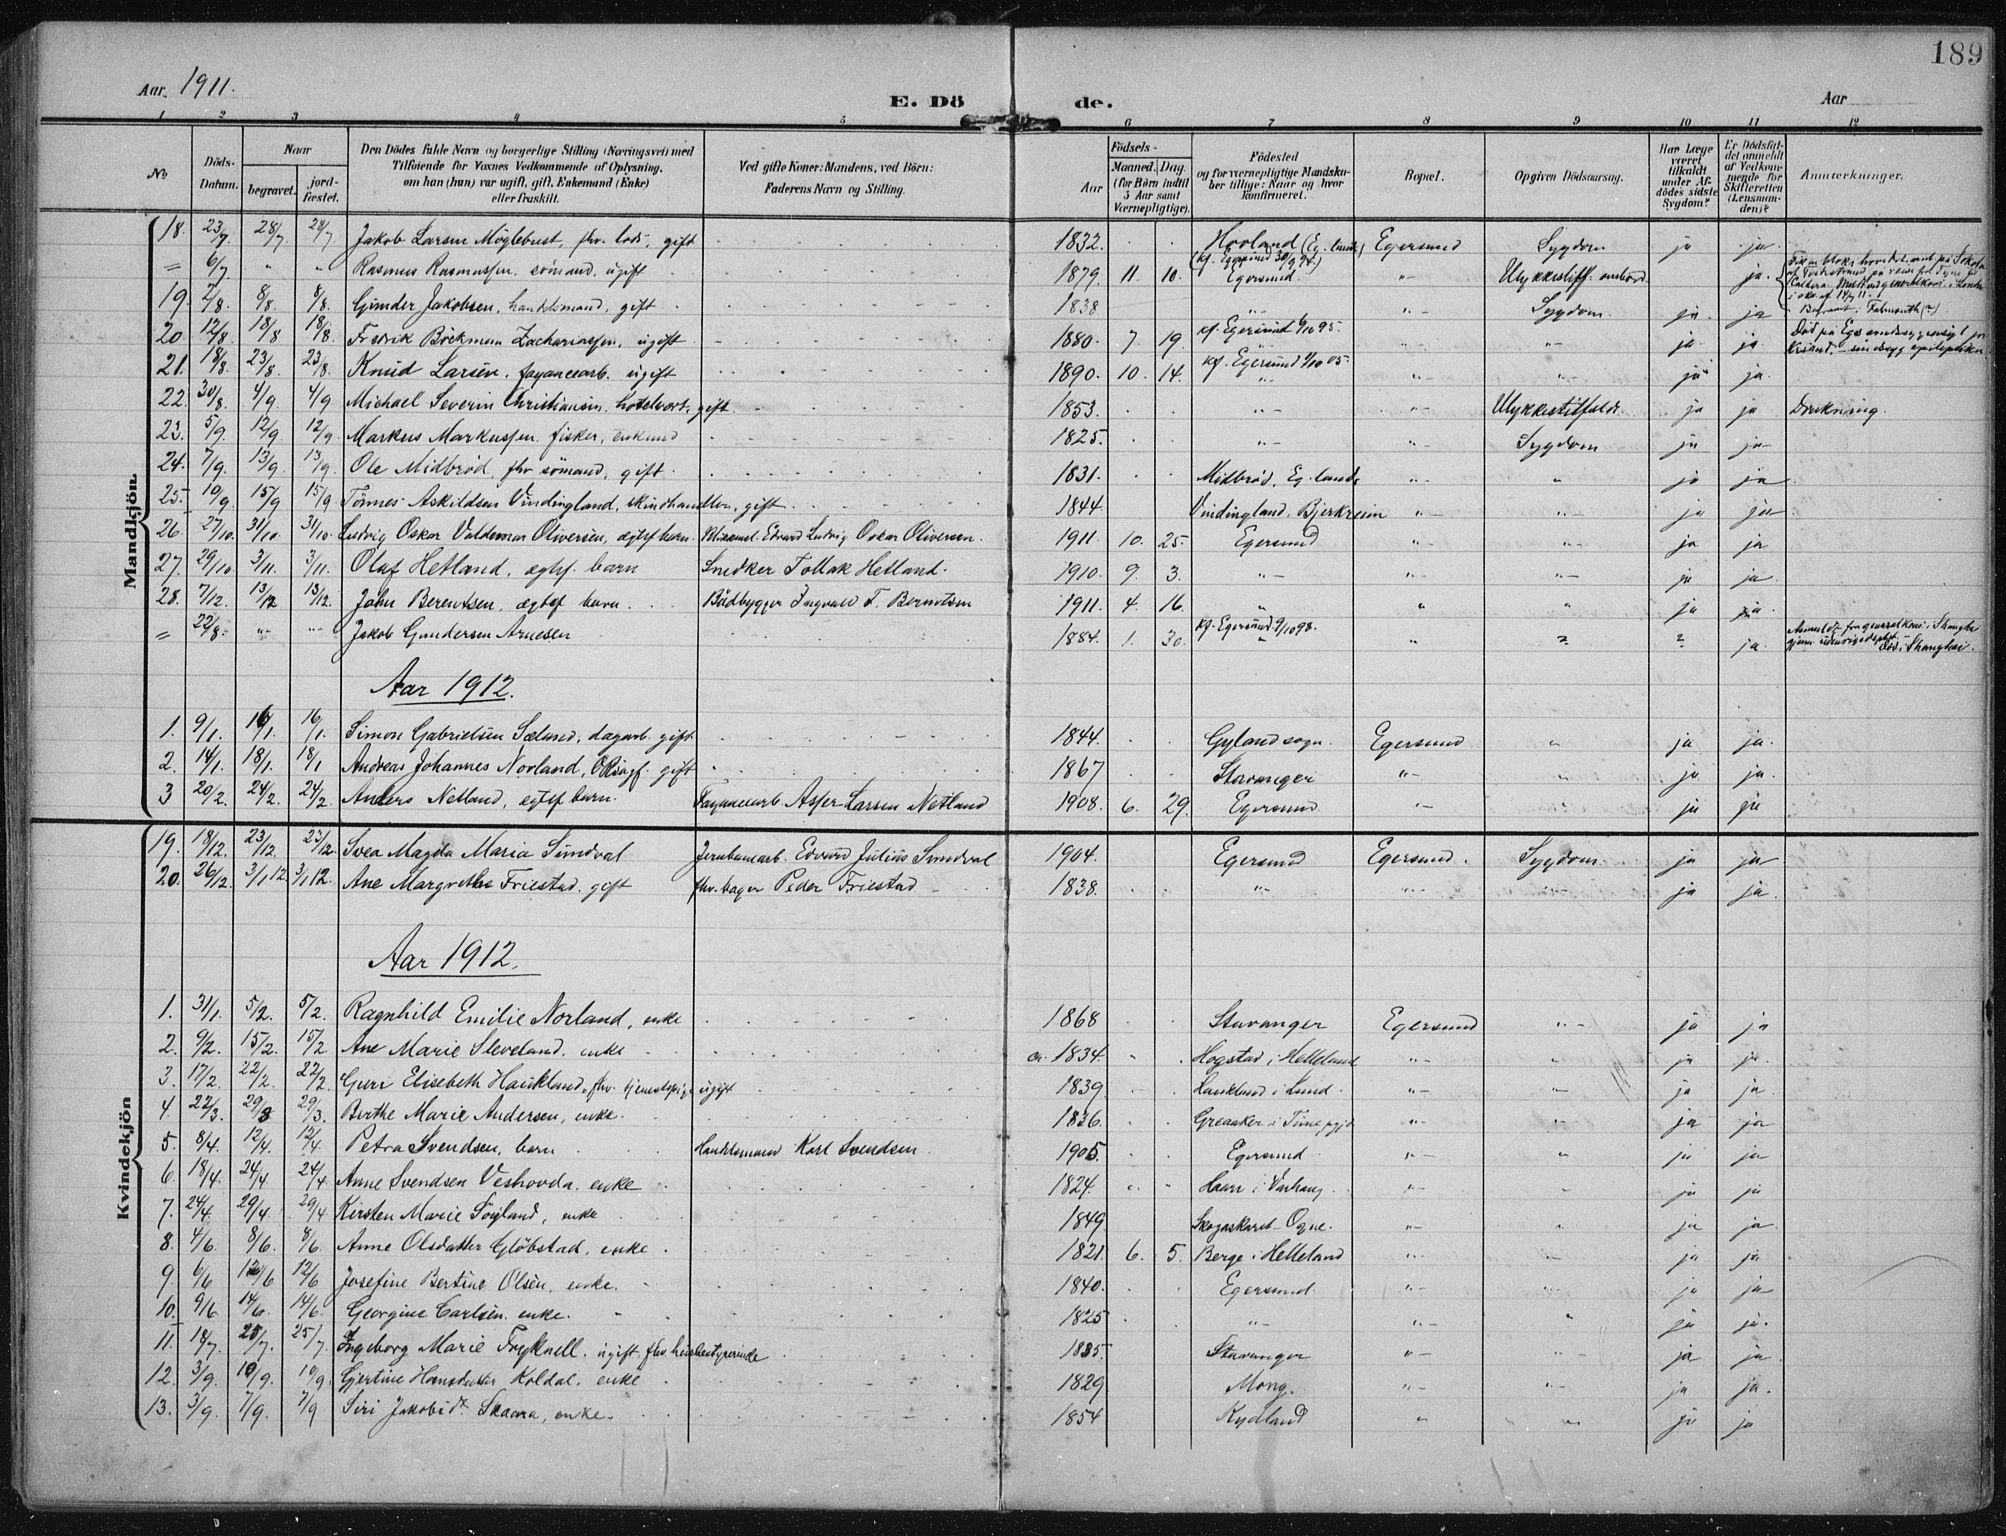 189
Aar 1911. E. Dö de. Aar
1 2 3 4 5 6 7 8 9 10 11 12
No
Döds-Datum.
Naar
begravet. jord-fæstet.
Den Dödes fulde Navn og borgerlige Stilling (Næringsvei) med
Tilföiende for Voxnes Vedkommende af Oplysning,
om han (hun) var ugift, gift, Enkemand (Enke)
eller fraskilt.
Ved gifte Koner: Mandens, ved Börn:
Faderens Navn og Stilling.
Födsels-
Aar Maaned. Dag.
(for Börn indtil
5 Aar samt
Værnepligtige).
Födested
og for værnepligtige Mandska-
ber tillige: Naar og hvor
konfirmeret.
Bopæl.
Opgiven Dödsaarsag.
Har Læge
været
tilkaldt
under Af-
dödes sidste
Sygdom?
Er Dödsfal-
det anmeldt
af Vedkom-
mende for
Skifteretten
(Lensman-
den)?
Anmærkninger.
Mandkjön
18. 23/7. 28/7 28/7 Jakob Larsen Möglebust, fhv. lods, gift 1832. Hovland (Eg. lands) Egersund Sygdom ja ja
" 6/7 " " Rasmus Rasmussen, sömand, ugift 1879. 11. 10. (kf. Egersund 30/9 94.) Egersund "- Ulykkestilf. ombord ja
19. 2/8. 8/8 8/8. Gunder Jakobsen, handelsmand, gift 1838 "- "- Sygdom. ja ja
20. 12/8. 18/8 18/8. Fredrik Böckman Zachariassen, ugift 1880. 7. 19. kf. Egersund 6/10 95. "- "- ja ja
21. 18/8. 23/8. 23/8. Knud Larsen, fayancearb. ugift 1890. 10. 14. kf. Egersund 1/10 05. " " ja ja.
22. 30/8. 4/9. 4/9 Michael Severin Christiansen, hotelvert, gift 1853. "- "- Ulykkestilfælde. ja ja Drukning.
23. 5/9. 12/9. 12/9. Markus Markussen fisker, enkemd 1825. "- "- Sygdom ja ja
24. 7/9. 13/9. 13/9. Ole Midbröd, fhv sömand, gift 1831. Midbröd, Eg. lands "- " ja ja
25. 10/9. 15/9 15/9 Tönnes Askildsen Vindingland, skindhandler, gift 1844. Vindingland, Bjerkreim "- " ja ja
26. 27/10. 31/10. 31/10. Ludvig Oskar Valdemar Oliversen, ægtef barn Edvard Ludvig Oskar Oliversen. 1911. 10. 25. Egersund " "- ja ja
27. 29/10. 3/11. 3/11. Olaf Hetland, ægtf. barn Snedker Tollak Hetland. 1910. 9. 3. "- "- "- ja ja.
28. 7/12. 13/12 13/12. John Berentsen, ægtef barn Bådbygger Ingvald T. Berentsen 1911. 4. 16. " " " ja ja.
" 22/8. "- "- Jakob Gundersen Arnesen 1884. 1. 30. kf. Egersund 9/10 98. " ? ? ja.
Död i Shanghai.
Aar 1912.
1. 9/1. 16/1. 16/1. Simon Gabrielsen Sæland, dagarb. gift 1844. Gyland sogn. Egersund " ja ja.
2. 14/1. 18/1. 18/1 Andreas Johannes Norland, gift 1867 Stavanger "- " ja ja.
3 20/2. 24/2. 24/2. Anders Netland, egtef barn. Fayancearb. Asser Larsen Netland 1908. 6. 29. Egersund "- " ja ja
Kvindekjön
19. 18/12. 23/12. 23/12. Svea Magda Maria Sundval Jernbanearb. Edvard Julius Sundval 1904. Egersund Egersund. Sygdom. ja ja
20. 26/12. 3/1 12. 3/1 12. Ane Margrethe Friestad, gift fhv. bager Peder Friestad 1838. "- "- "- ja ja.
Aar 1912.
1. 31/1. 5/2. 5/2. Ragnhild Emilie Norland, enke 1868 Stavanger Egersund "- ja ja
2. 9/2. 15/2. 15/2 Ane Marie Sleveland, enke ca. 1834. Hogstad i Helleland "- " ja ja.
3. 17/2. 22/2. 22/2. Guri Elisabeth Haukland, fhv. tjenestepige, ugift 1839 Haukland i Lund. "- " ja ja
4. 22/3. 29/3 29/3. Berthe Marie Andersen, enke. 1836. Greaaker i Time pgjd "- "- ja ja
5. 8/4. 12/4. 12/4. Petra Svendsen, barn Handelsmand Karl Svendsen 1905 Egersund. "- " ja ja
6. 18/4. 24/4 24/4 Anne Svendsen Veshovda, enke 1824. Haarr i Varhaug "- "- ja ja
7. 24/4. 29/4. 29/4 Kirsten Marie Sögland, enke 1849. Skogaskaret Ogne. "- " ja ja.
8. 4/6. 8/6. 8/6. Anne Olsdatter Glöbstad, enke. 1821. 6. 5. Berge i Helleland "- "- ja ja
9. 6/6 12/6 12/6 Josefine Bertine Olsen, enke. 1840. Egersund "- "- ja ja
10. 9/6 14/6. 14/6. Georgine Carlsen, enke. 1825 "- "- " ja ja.
11. 18/7. 25/7. 25/7. Ingeborg Marie Frykvell, ugift, fhv. husbestyrerinde 1835. Stavanger "- " ja ja.
12. 3/9. 10/9. 10/9. Gjertine Hansdatter Koldal, enke 1829 Mong. "- "- ja ja.
13. 3/9. 7/9. 7/9 Siri Jakobsdt. Skaara, enke. 1854 Kydland " " ja ja